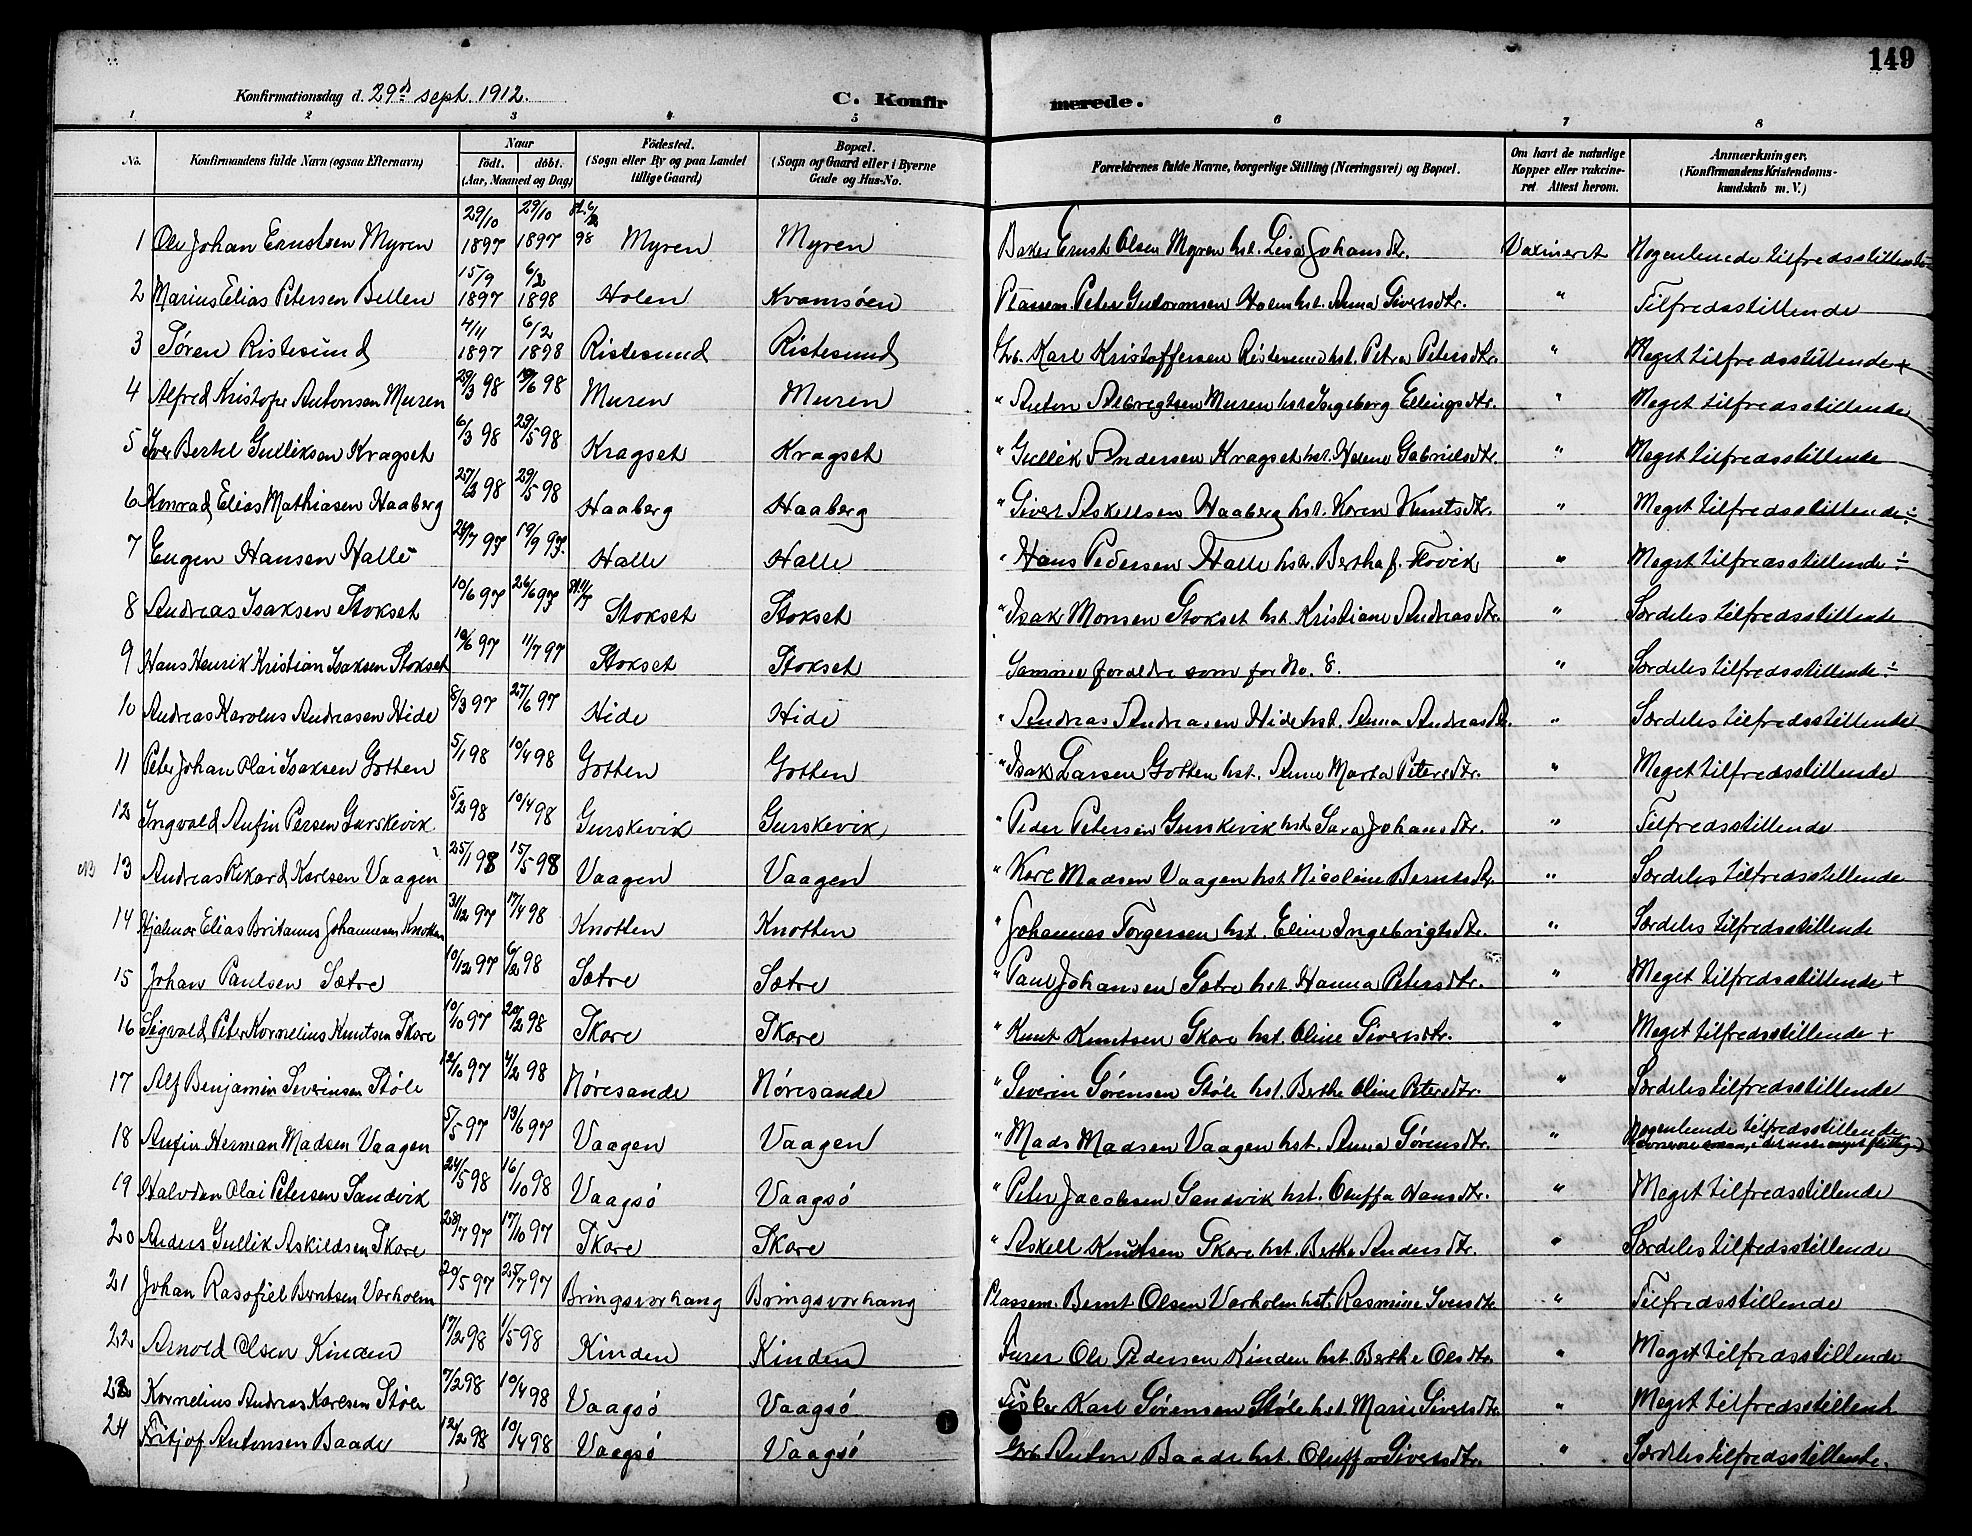 149
Konfirmationsdag d. 29d sept. 1912.
C. Konfirmerede.
1 2 3 4 5 6 7 8
No. Konfirmandens fulde Navn (ogsaa Efternavn) Naar födt. döbt. (Aar, Maaned og Dag) Födested. (Sogn eller By og paa Landet tillige Gaard) Bopæl. (Sogn og Gaard eller i Byerne Gade og Hus-No. Forældrenes fulde Navne, borgerlige Stilling (Næringsvei) og Bopæl. Om havt de naturlige Kopper eller vakcineret. Attest herom. Anmærkninger. (Konfirmandens Kristendomskundskab m. V.)
1 Ole Johan Ernstsen Myren 29/10 1897 29/10 1897 98 Myren Myren Baker Ernst Olsen Myren hst. Lisa Johansdtr. Vaxineret Nogenlunde tilfredsstillende
2 Marius Elias Petersen Bellen 15/9 1897 6/2 1898 Holen Kvamsöen Plassem. Peter Gudormsen Holen hst. Anna Siversdtr. " Tilfredsstillende
3 Sören Ristesund 4/11 1897 6/2 1898 Ristesund Ristesund Grb. Karl Kristoffersen Ristesund hst. Petra Petersdtr. " Meget tilfredsstillende +
4 Alfred Kristofer Antonsen Muren 29/3 98 19/6 98 Muren Muren " Anton Albregtsen Muren hst. Ingeborg Ellingsdtr. " Meget tilfredsstillende
5 Iver Bertel Gulliksen Kragset 6/3 98 29/5 98 Kragset Kragset " Gullik Andersen Kragset hst. Helene Gabrielsdtr. " Meget tilfredsstillende
6 Konrad Elias Mathiasen Haaberg 98 29/5 98 Haaberg Haaberg " Sivert Askellsen Haaberg hst. Karen Knutsdtr. " Meget tilfredsstillende ÷
7 Eugen Hansen Halle 97 19/9 97. Halle Halle " Hans Pedersen Halle hst. Bertha f. Flovik " Meget tilfredsstillende ÷
8 Andreas Isaksen Stokset 10/6 97 26/6 97 Stokset Stokset " Isak Monsen Stokset hst. Kristiane Andreasdtr. " Særdeles tilfredsstillende
9 Hans Henrik Kristian Isaksen Stokset 10/6 97 11/7 97 Stokset Stokset Samme foreldre som for No. 8. " Særdeles tilfredsstillende ÷
10 Andreas Karolus Andreasen Hide 8/3 97 27/6 97 Hide Hide " Andreas Andreasen Hide hst. Anna Andreasdtr. " Særdeles tilfredsstillende
11 Peter Johan Olai Isaksen Gotten 5/1 98 10/4 98 Gotten Gotten " Isak Larsen Gotten hst. Anne Marta Petersdtr. " Meget tilfredsstillende
12 Ingvald Anfin Persen Gurskevik 5/2 98 10/4 98 Gurskevik Gurskevik " Peder Petersen Gurskevik hst. Sara Johansdtr. " Tilfredsstillende
NB 13 Andreas Rikard Karlsen Vaagen 25/1 98 15/5 98 Vaagen Vaagen " Karl Madsen Vaagen hst. Nicoline Berntsdtr. " Særdeles tilfredsstillende
14 Hjalmar Elias Britanus Johannesen Knotten 31/12 97 17/4 98 Knotten Knotten " Johannes Torgersen hst. Eline Ingebrigtsdtr. " Særdeles tilfredsstillende
15 Johan Paulsen Sætre 10/12 97 6/2 98 Sætre Sætre " Paul Johansen Sætre hst. Hanna Petersdtr. " Meget tilfredsstillende +
16 Sigvald Peter Kornelius Knutsen Skare 10/10 97 20/2 98 Skare Skare " Knut Knutsen Skare hst. Oline Siversdtr. " Meget tilfredsstillende +
17 Alf Benjamin Severinsen Stöle 12/10 97 4/2 98 Nöresande Nöresande " Severin Sörensen Stöle hst. Berthe Oline Petersdtr. " Særdeles tilfredsstillende
18 Anfin Herman Madsen Vaagen 5/5 97 19/6 97 Vaagen Vaagen " Mads Madsen Vaagen hst. Anna Sörensdtr. " Nogenlunde tilfredsstillende
19 Halvdan Olai Petersen Sandvik 24/5 98 16/10 98 Vaagsö Vaagsö " Peter Jacobsen Sandvik hst. Oluffa Hansdtr. " Meget tilfredsstillende
20 Anders Gullik Askildsen Skare 28/7 97 17/10 97 Skare Skare " Askell Knutsen Skare hst. Berthe Andersdtr. " Særdeles tilfredsstillende
21 Johan Rasofiel Berntsen Varholm 20/5 97 25/7 97 Bringsvorhang Bringsvorhang Plassem. Bernt Olsen Varholm hst. Rasmine Iversdtr. " Tilfredsstillende
22 Arnold Olsen Kinden 17/2 98 1/5 98 Kinden Kinden Ole Pedersen Kinden hst. Berthe Olsdtr. " Meget tilfredsstillende
23 Kornelius Andreas Karlsen Stöle 7/2 98 10/4 98 Vaagsö Vaagsö Fisker Karl Sörensen Stöle hst. Marie Sivertsdtr. " Meget tilfredsstillend
24 Fritjof Antonsen Baade 12/2 98 10/4 98 Vaagsö Vaagsö Grb. Anton Baade hst. Oluffa Sivertsdtr. " Særdeles tilfredsstillende.